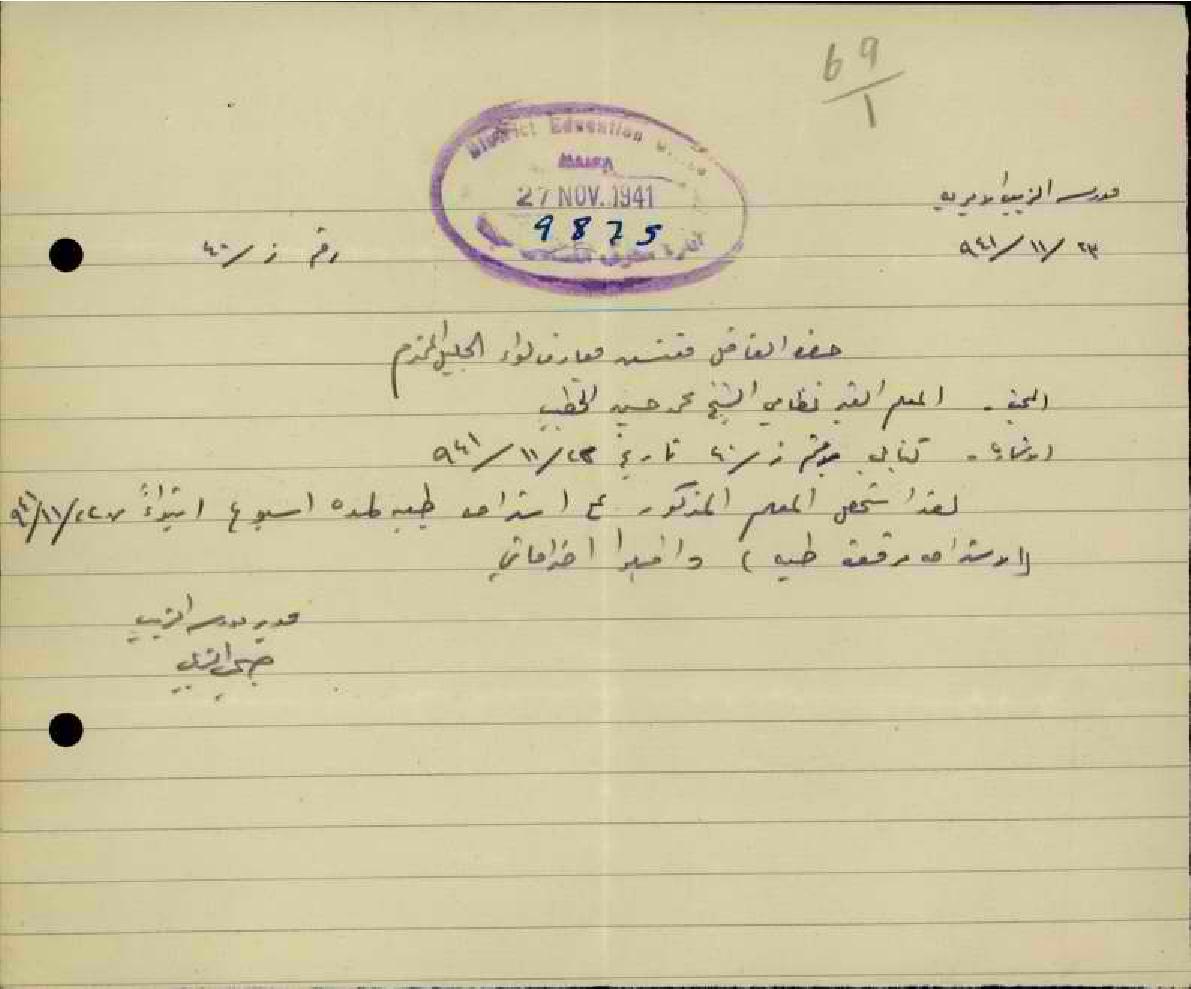 69
1
District Education
HAIFA
27 NOV. 1941
9875
مدرسة الزيب الاميرية
٢٣/١١/٩٤١
رقم ز/٤٠
حضرة الفاضل مفتش معارف لواء الجليل المحترم
المعلم الغير نظامي الشيخ محمد حسين الخطيب
كتابي رقم ز/٤٠ تاريخ ٢٣/١١/٩٤١
لقد المعلم المذكور على استراحة طبية لمدة اسبوع ابتداءً ٩٤١/١١/
(الاستراحة مرفقة طيه) واقبلوا احتراماتي
مدير مدرسة الزيب